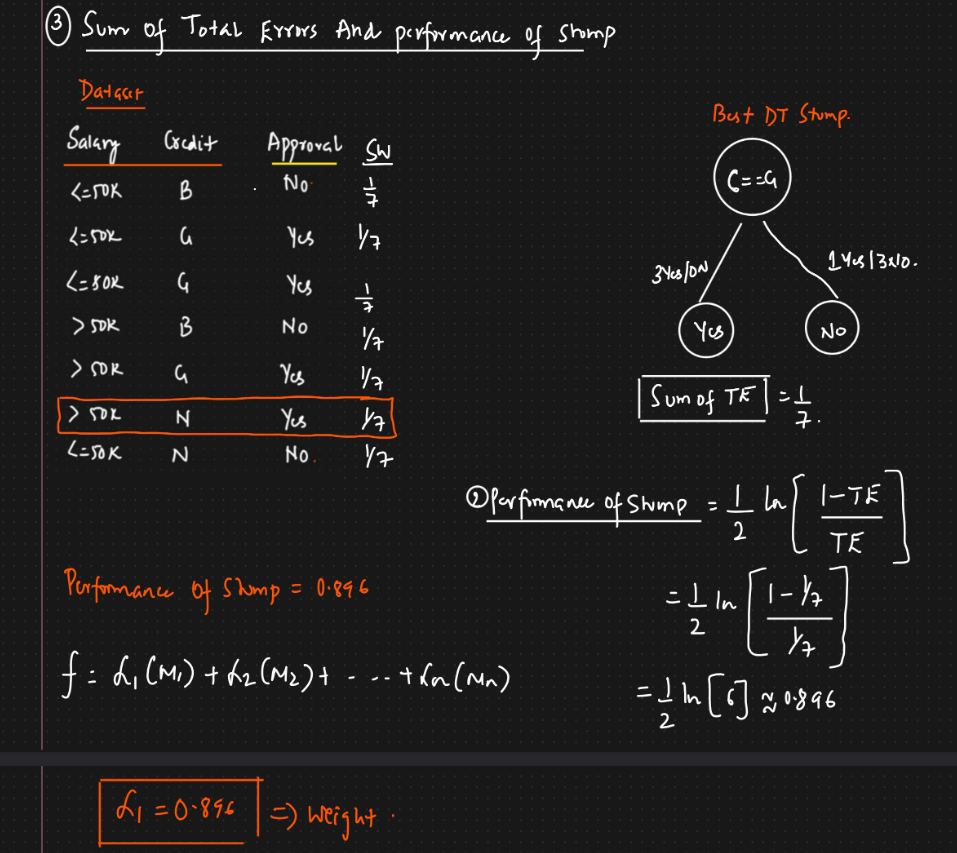 ③ Sum of Total Errors And performance of stump
Dataset
Salary Credit Approval SW
<=50K B No 1/7
<=50K G Yes 1/7
<=50K G Yes 1/7
>50K B No 1/7
>50K G Yes 1/7
>50K N Yes 1/7
<=50K N No. 1/7
Best DT Stump.
C==G
3Yes/0N
1Yes/3No.
Yes
No
Sum of TE = 1/7.
② Performance of Stump = 1/2 ln [ 1-TE / TE ]
= 1/2 ln [ 1-1/7 / 1/7 ]
= 1/2 ln [6] ≈ 0.896
Performance of Stump = 0.896
f = α1 (M1) + α2 (M2) + - - .. + αn (Mn)
α1 = 0.896 => Weight.